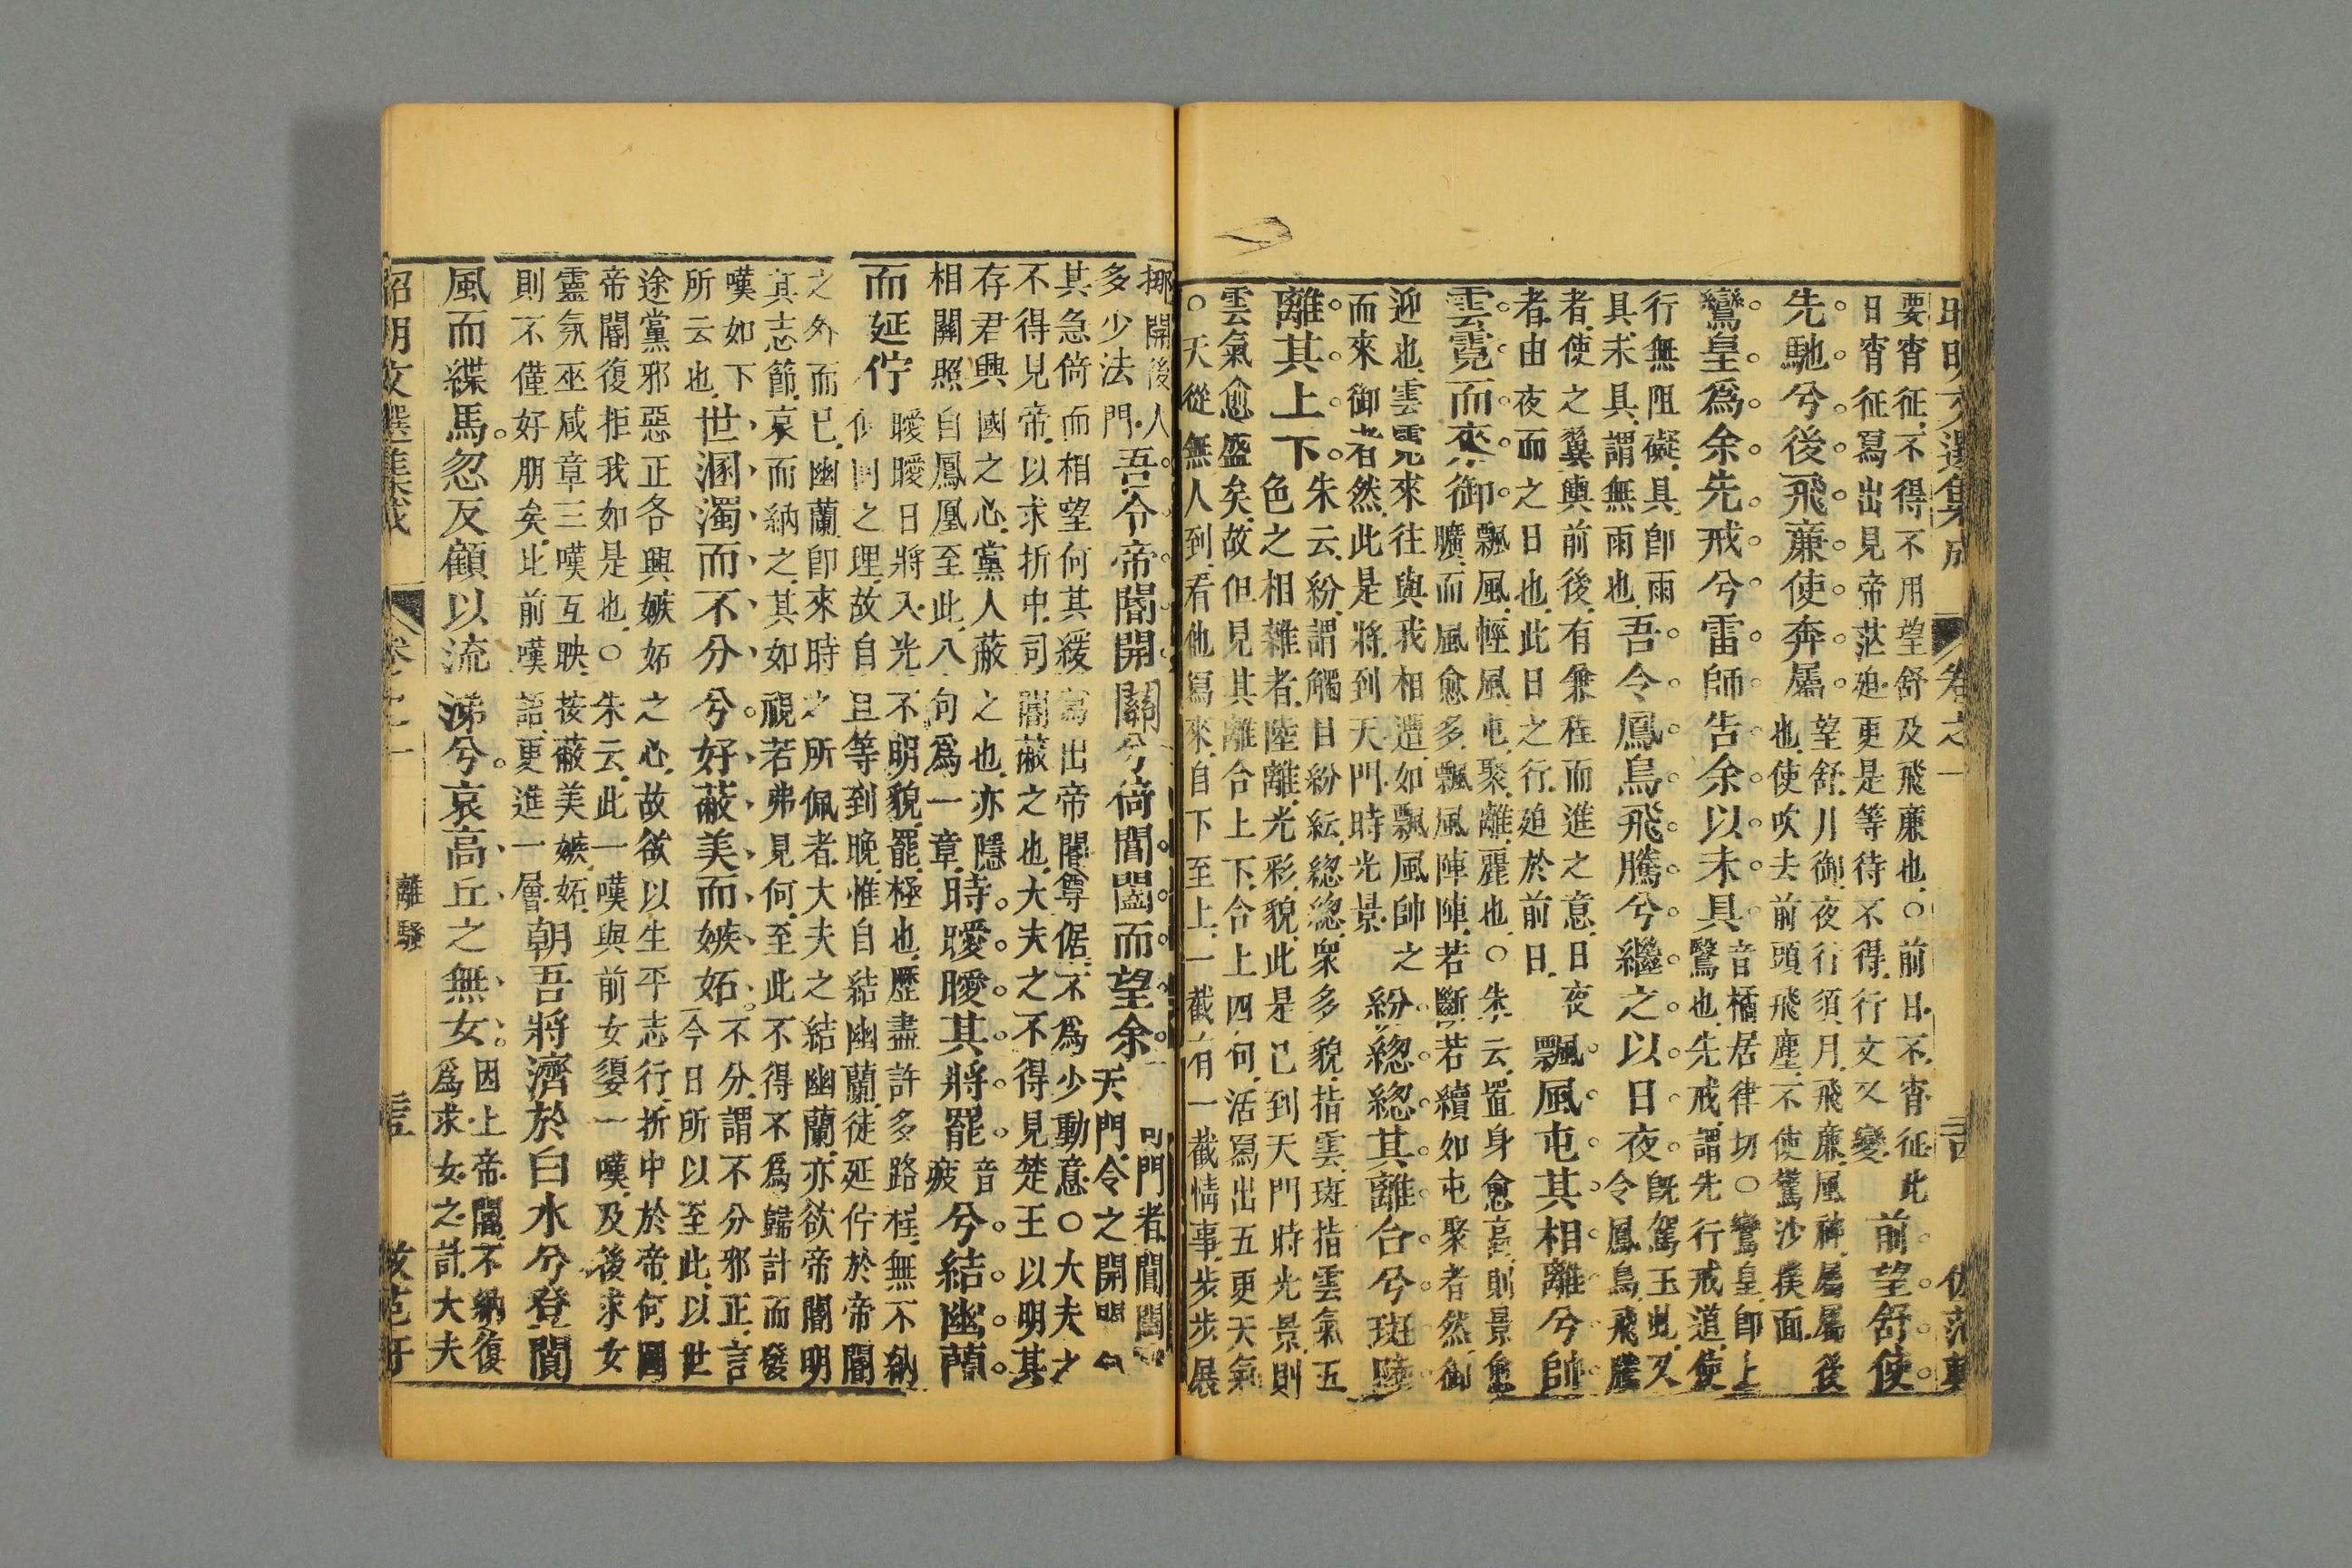 昭明文選集成 卷之一
要宵征不得不用望舒及飛廉也○前日不宵征此
日宵征寫出見帝茫迫更是等待不得行文又變
前望舒使
先馳兮後飛廉使奔屬
望舒月御夜行須月飛廉風神屬屬後
也使吹去前頭飛塵不使驚沙撲面
鸞皇爲余先戒兮雷師告余以未具
音橘居律切○鸞皇卽上
驚也先戒謂先行戒道使
行無阻礙具卽雨
具未具謂無雨也
吾令鳳鳥飛騰兮繼之以日夜
旣駕玉虬又
令鳳鳥飛騰
者使之翼輿前後有兼程而進之意日夜
者由夜而之日也此日之行迫於前日
飄風屯其相離兮帥
雲霓而來御
飄風輕風屯聚離麗也○朱云置身愈高則景愈
曠而風愈多飄風陣陣若斷若續如屯聚者然御
迎也雲霓來往與我相遭如飄風帥之
而來御者然此是將到天門時光景
紛總總其離合兮斑陸
離其上下
朱云紛謂觸目紛紜總總衆多貌指雲斑指雲氣五
色之相雜者陸離光彩貌此是已到天門時光景則
雲氣愈盛矣故但見其離合上下合上四句活寫出五更天氣
○天從無人到看他寫來自下至上一截有一截情事步步展
挪開後人
多少法門
吾令帝閽開關兮倚閶闔而望余
司門者閶闔
天門令之開關
其急倚而相望何其緩寫出帝閽尊倨不爲少動意○大夫之
不得見帝以求折中司閽蔽之也大夫之不得見楚王以明其
存君興國之心黨人蔽之也亦隱
相關照自鳳凰至此八句爲一章
時曖曖其將罷
音
疲
兮結幽蘭
而延佇
曖曖日將入光不明貌罷極也歷盡許多路程無不納
之理故自且等到晚惟自結幽蘭徒延佇於帝閽
之外而已幽蘭卽來時之所佩者大夫之結幽蘭亦欲帝閽明
其志節哀而納之其如視若弗見何至此不得不爲歸計而發
嘆如下
所云也
世溷濁而不分兮好蔽美而嫉妬
不分謂不分邪正言
今日所以至此以世
途黨邪惡正各興嫉妬之心故欲以生平志行折中於帝何圖
帝閽復拒我如是也○朱云此一嘆與前女嬃一嘆及後求女
靈氛巫咸章三嘆互映按蔽美嫉妬
則不僅好朋矣此前嘆語更進一層
朝吾將濟於白水兮登閬
風而緤馬忽反顧以流涕兮哀高丘之無女
因上帝閽不納復
爲求女之計大夫
昭明文選集成 卷之一 離騷